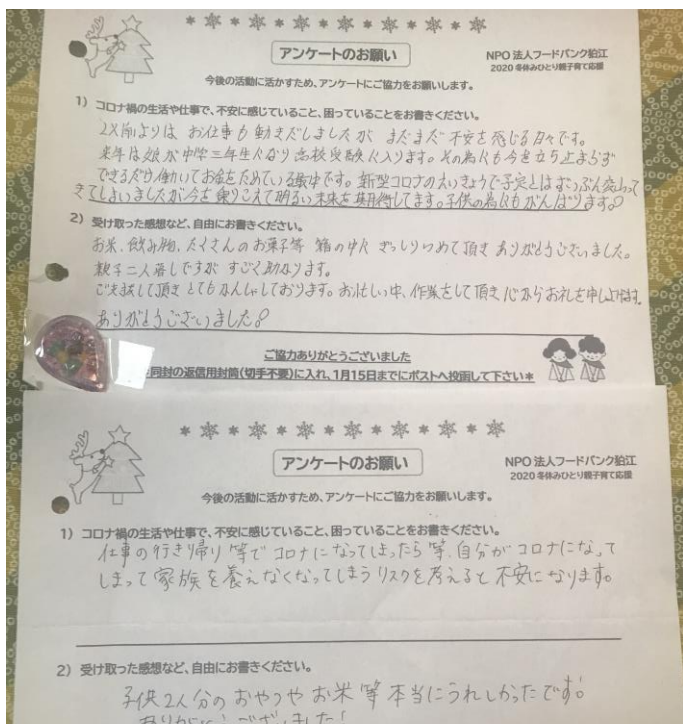 アンケートのお願い
NPO法人フードバンク狛江
2020 冬休みひとり親子育て応援
今後の活動に活かすため、アンケートにご協力をお願いします。
1) コロナ禍の生活や仕事で、不安に感じていること、困っていることをお書きください。
2ヶ月前よりは お仕事も 動きだしましたが まだまだ 不安を感じる日々です。
来年は娘が中学三年生になり 高校受験に入ります。その為にも今を立ち止まらず
できるだけ働いてお金をためている最中です。新型コロナのえいきょうで予定とはずいぶん変わって
きてしまいましたが今を乗りこえて明るい未来を期待してます。子供の為にもがんばります。
2) 受け取った感想など、自由にお書きください。
お米、飲み物、たくさんのお菓子等 箱の中に ぎっしりつめて頂き ありがとうございました。
親子二人暮しですが すごく助かります。
ご支援して頂き とてもかんしゃしております。お忙しい中、作業をして頂き 心からお礼を申し上げます。
ありがとうございました
ご協力ありがとうございました
同封の返信用封筒(切手不要)に入れ、1月15日までにポストへ投函して下さい*
アンケートのお願い
NPO法人フードバンク狛江
2020 冬休みひとり親子育て応援
今後の活動に活かすため、アンケートにご協力をお願いします。
1) コロナ禍の生活や仕事で、不安に感じていること、困っていることをお書きください。
仕事の行き帰り等でコロナになってしまったら等、自分がコロナになって
しまって家族を養えなくなってしまうリスクを考えると不安になります。
2) 受け取った感想など、自由にお書きください。
子供2人分のおやつやお米等本当にうれしかったです。
ありがとうございました!